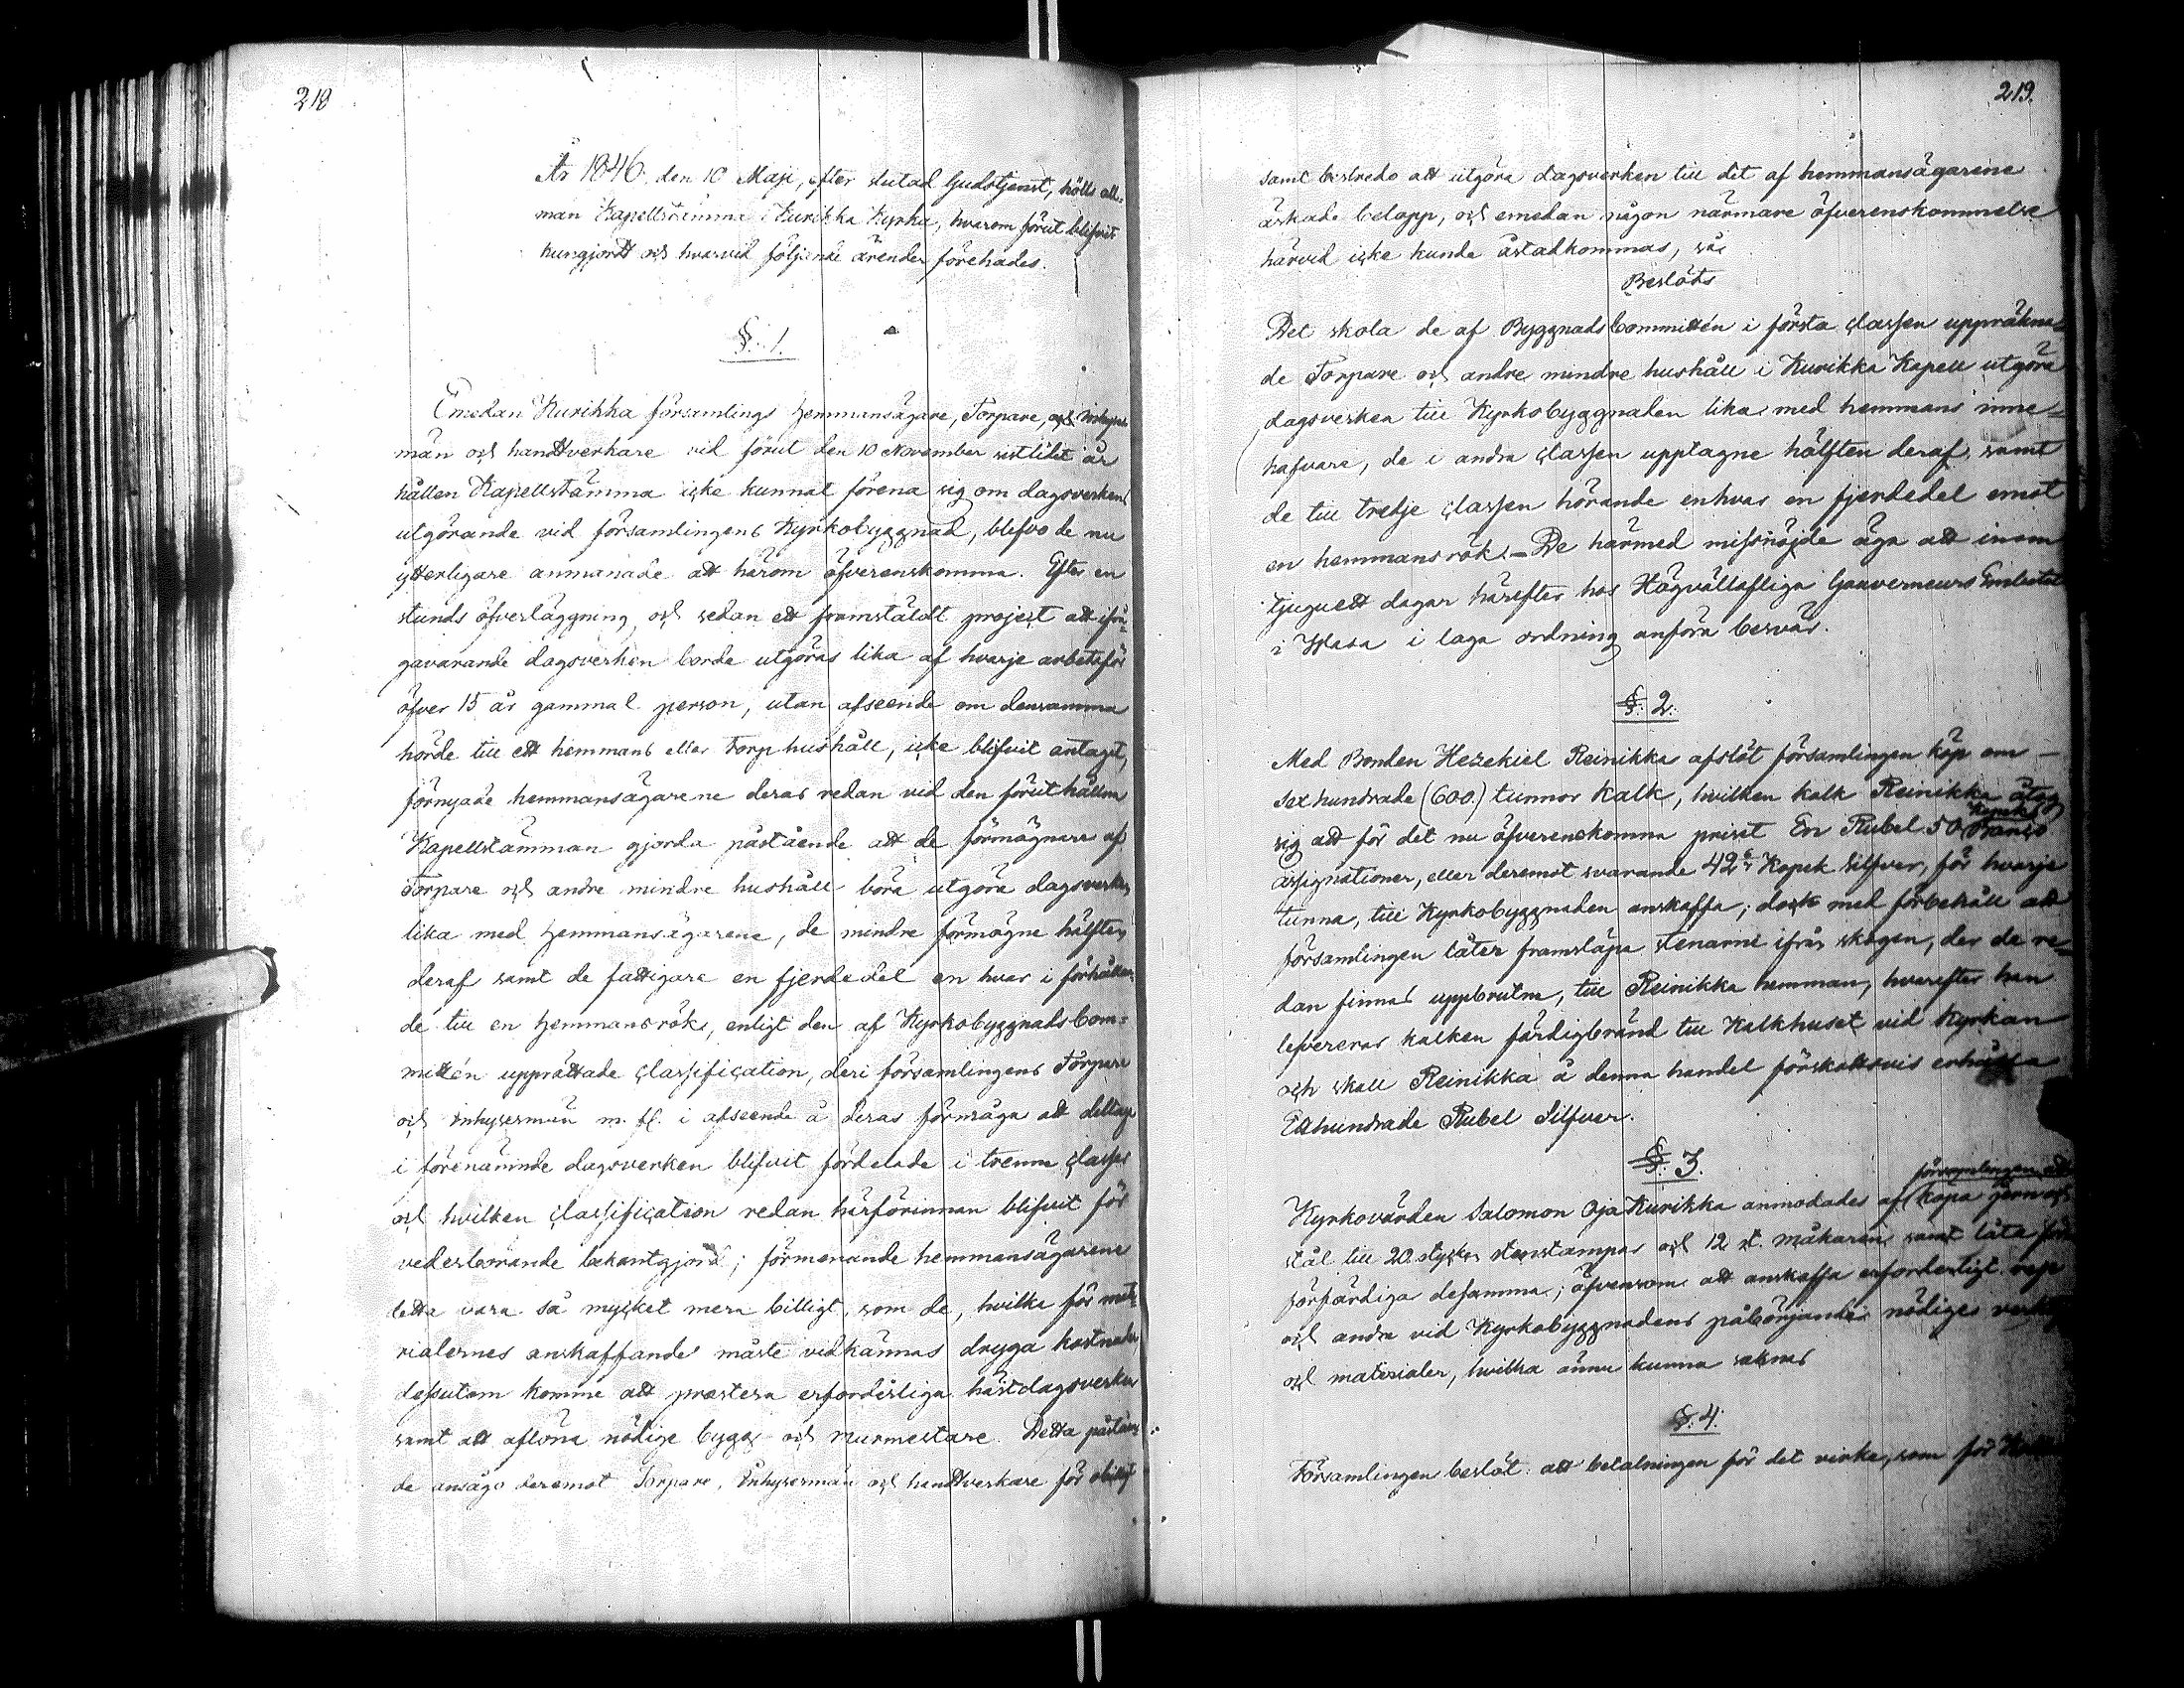 218
År 1846, den 10 Maji, efter slutad Gudstjenst, hölls all-
män Kapellstämma i Kurikka Kyrka, hvarom förut blifvit
kungjordt och hvarvid följande ärender förehades.
§. 1.
Emedan Kurikka församlings Hemmansägare, Torpare, och Inhyses
män och handtverkare vid förut den 10 November sistlidet år
hållen Kapellstämma icke kunnat förena sig om dagsverkens
utgörande vid församlingens Kyrkobyggnad, blefvo de nu
ytterligare anmanade att härom öfverenskomma. Efter en
stunds öfverläggning, och sedan ett framstäldt project att ifrå-
gavarande dagsverken borde utgöras lika af hvarje arbetsför
öfver 15 år gammal person, utan afseende om densamma
hörde till ett hemmans eller Torp hushåll, icke blifvit antaget,
förnyade hemmansägarene deras redan vid den förut hållna
Kapellstämman gjorda påstående att de förmögnare af
Torpare och andre mindre hushåll böra utgöra dagsverken
lika med Hemmansägarene, de mindre förmögne hälften
deraf samt de fattigare en fjerdedel en hvar i förhållan-
de till en Hemmansrök, enligt den af KyrkobyggnadsCom=
mittén upprättade classification, deri församlingens Torpare
och Inhysesmän m. fl. i afseende å deras förmåga att deltaga
i förenämnde dagsverken blifvit fördelade i trenne classer
och hvilken classification redan härförinnan blifvit för
vederbörande bekantgjord; förmenande hemmansägarene
detta vara så mycket mera billigt, som de, hvilka för mate-
rialernes anskaffande måste vidkännas dryga kostnader,
dessutom komme att præstera erforderliga hästdagsverken
samt att aflöna nödige bygg- och murmestare. Detta påståen-
de ansågo deremot Torpare, Inhysesmän och handtverkare för obilligt
219.
samt bestredo att utgöra dagsverken till det af hemmansägarene
äskade belopp, och emedan någon närmare öfverenskommelse
härvid icke kunde åstadkommas, så
Beslöts
Det skola de af ByggnadsCommittén i första classen uppräkna=
de Torpare och andre mindre hushåll i Kurikka Kapell utgöra
dagsverken till Kyrkobyggnaden lika med hemmans inne=
hafvare, de i andra classen upptagne hälften deraf, samt
de till tredje classen hörande enhvar en fjerdedel emot
en hemmansrök. – De härmed missnöjde äga att inom
tjuguett dagar härefter hos Högvällofliga Gouverneurs Embetet
i Wasa i laga ordning anföra besvär.
§. 2.
Med Bonden Hezekiel Reinikka afslöt församlingen köp om –
Sexhundrade (600.) tunnor kalk, hvilken kalk Reinikka åtog
sig att för det nu öfverenskomna priset En Rubel 50 Kopek Banco
assignationer, eller deremot svarande 42 Kopek Silfver, för hvarje
tunna, till Kyrkobyggnaden anskaffa; dock med förbehåll att
församlingen låter framsläpa stenarne ifrån skogen, der de re=
dan finnas uppbrutne, till Reinikka hemman, hvarefter han
lefvererar kalken färdigbränd till Kalkhuset vid Kyrkan
och skall Reinikka å denna handel förskottsvis erhålla
Etthundrade Rubel Silfver.
§. 3.
Kyrkovärden Salomon Oja Kurikka anmodades af församlingen att köpa Jern och
stål till 20 stycken stenstampar och 12 st. måkaren samt låta
förfärdiga desamma; äfvensom att anskaffa erforderligt rep
och andra vid Kyrkobyggnadens påbörjande nödiges verktyg
och materialer, hvilka ännu kunna saknas
§. 4.
Församlingen beslöt: att betalningen för det virke, som för